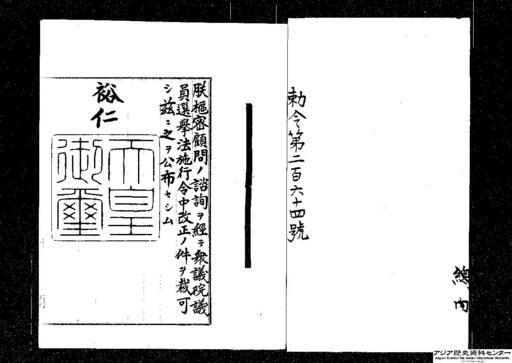 勅令第二百六十四號
總內
朕樞密顧問ノ諮詢ヲ經テ衆議院議
員選擧法施行令中改正ノ件ヲ裁可
シ茲ニ之ヲ公布セシム
裕仁
天皇
御璽
アジア歴史資料センター
Japan Center for Asian Historical Records